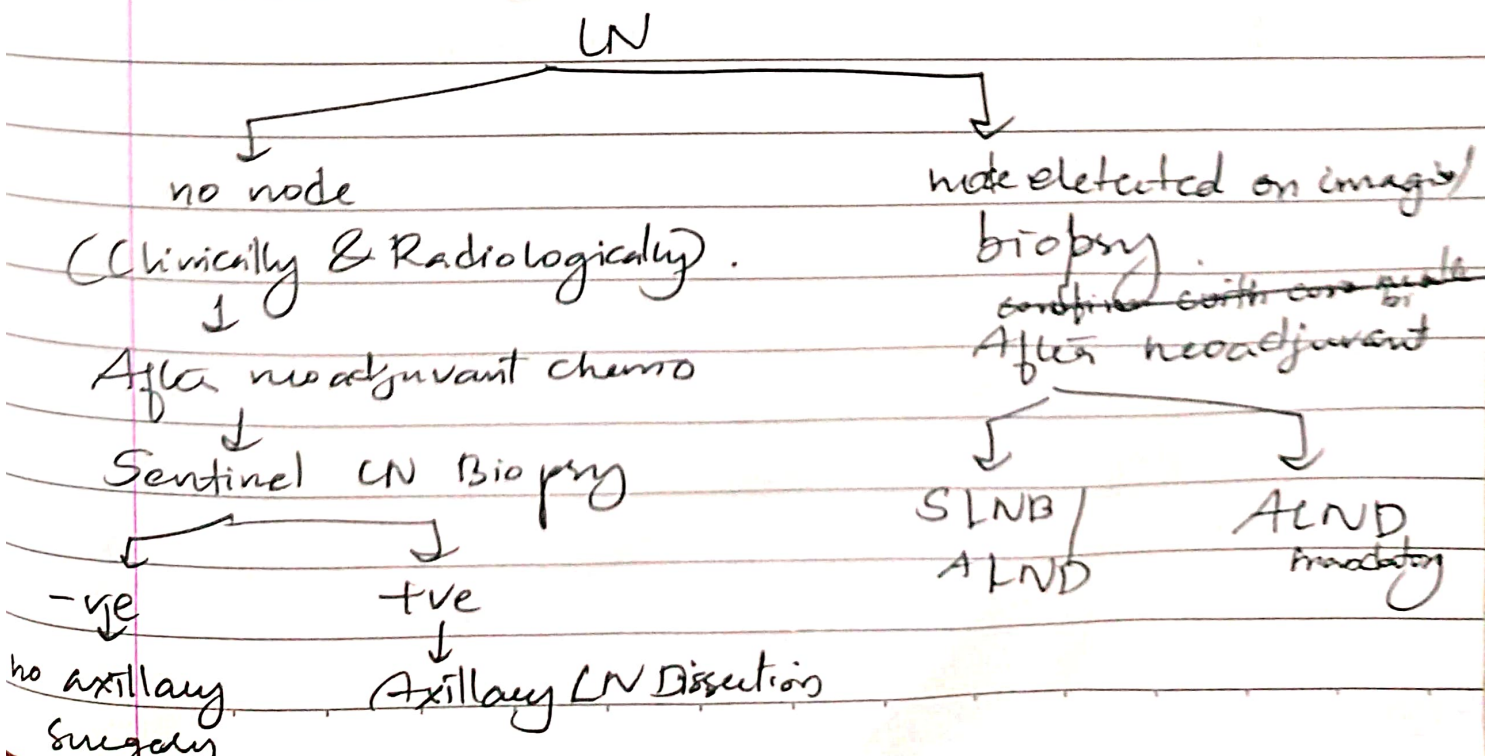 LN
no node
(Clinically & Radiologically).
After neoadjuvant chemo
Sentinel LN Biopsy
-ve
+ve
no axillary
surgery
Axillary LN Dissection
node detected on imaging/
biopsy.
After neoadjuvant
SLNB/
ALND
ALND
mandatory